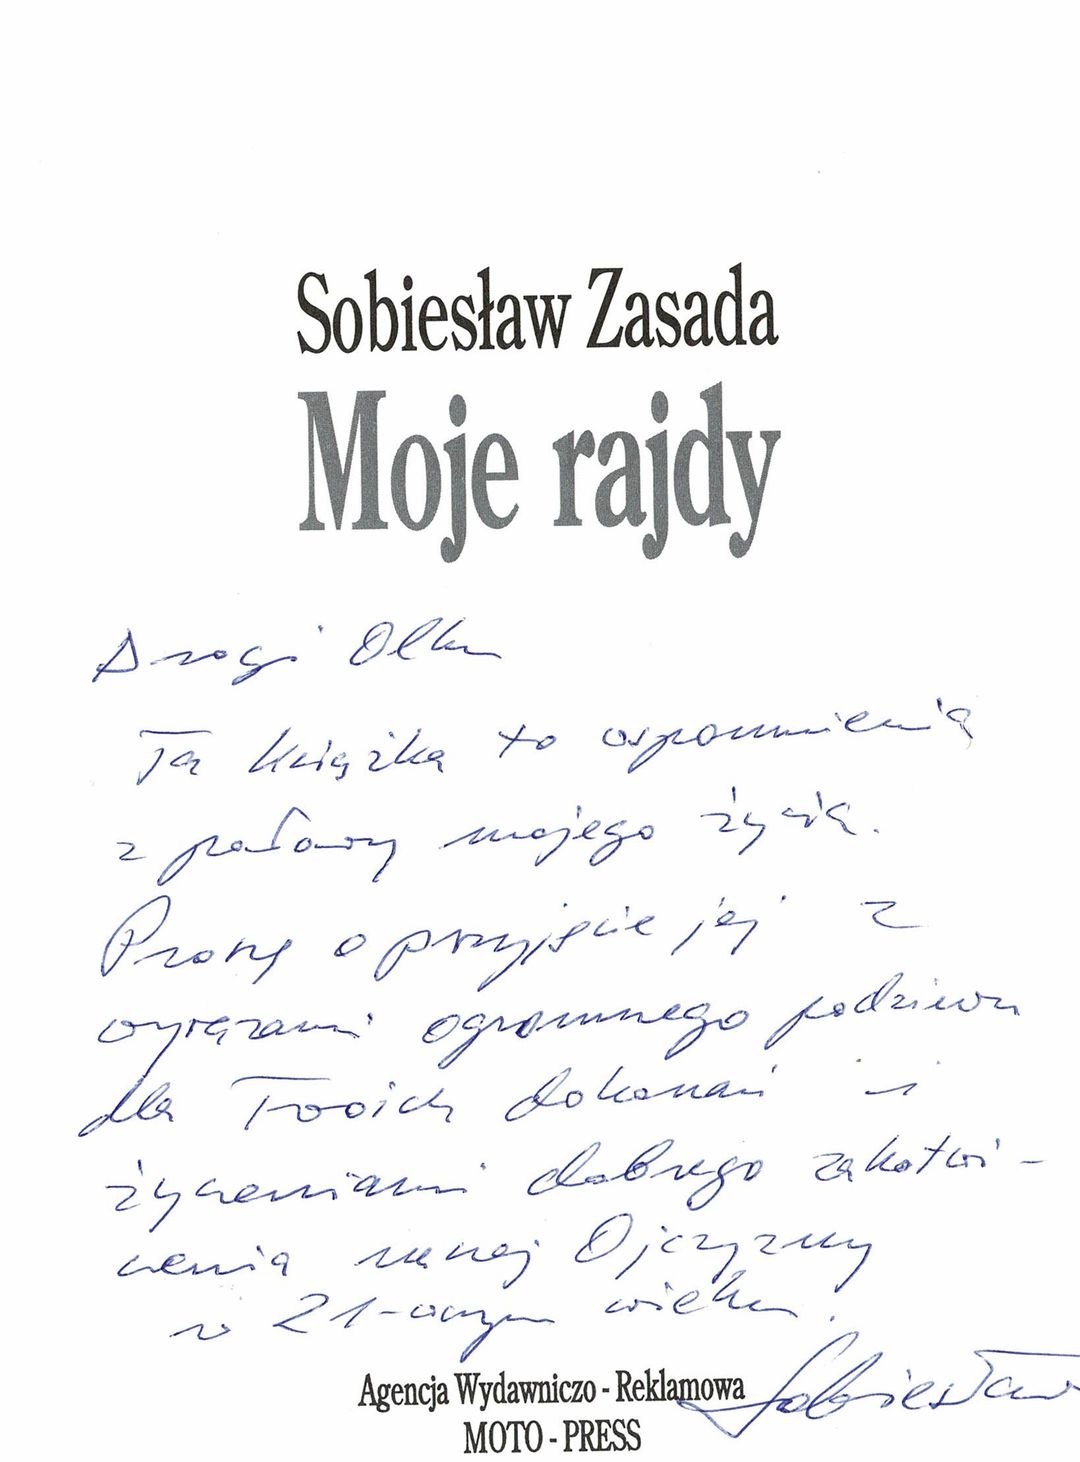 Sobiesław Zasada
Moje rajdy
Drogi Olku
Ta książka to wspomnienia
z połowy mojego życia.
Proszę o przyjęcie jej z
wyrazami ogromnego podziwu
dla Twoich dokonań i
życzeniami dobrego zakotwi-
czenia naszej Ojczyzny
w 21-wszym wieku.
Sobiesław
Agencja Wydawniczo - Reklamowa
MOTO - PRESS